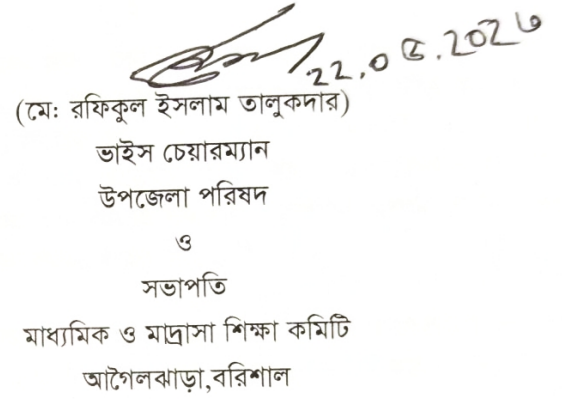 22.05.2023
(মো: রফিকুল ইসলাম তালুকদার)
ভাইস চেয়ারম্যান
উপজেলা পরিষদ
ও
সভাপতি
মাধ্যমিক ও মাদ্রাসা শিক্ষা কমিটি
আগৈলঝাড়া,বরিশাল